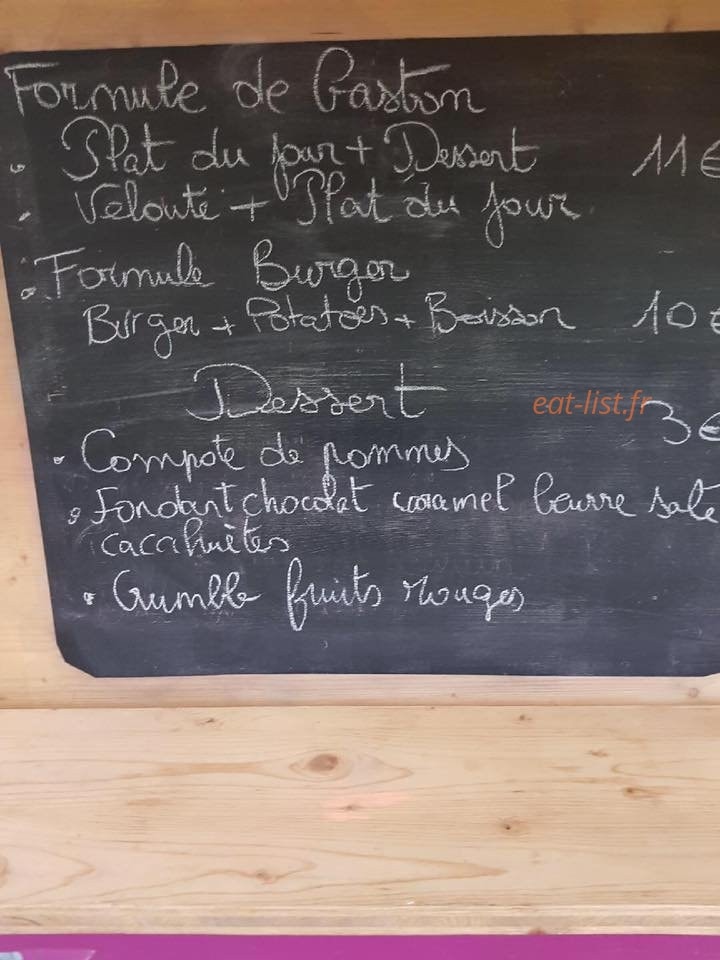 Formule de Gaston
• Plat du jour + Dessert 11€
• Velouté + Plat du jour
• Formule Burger
Burger + Potatoes + Boisson 10€
Dessert 3€
eat-list.fr
• Compote de pommes
• Fondant chocolat caramel beurre salé
cacahuètes
• Crumble fruits rouges